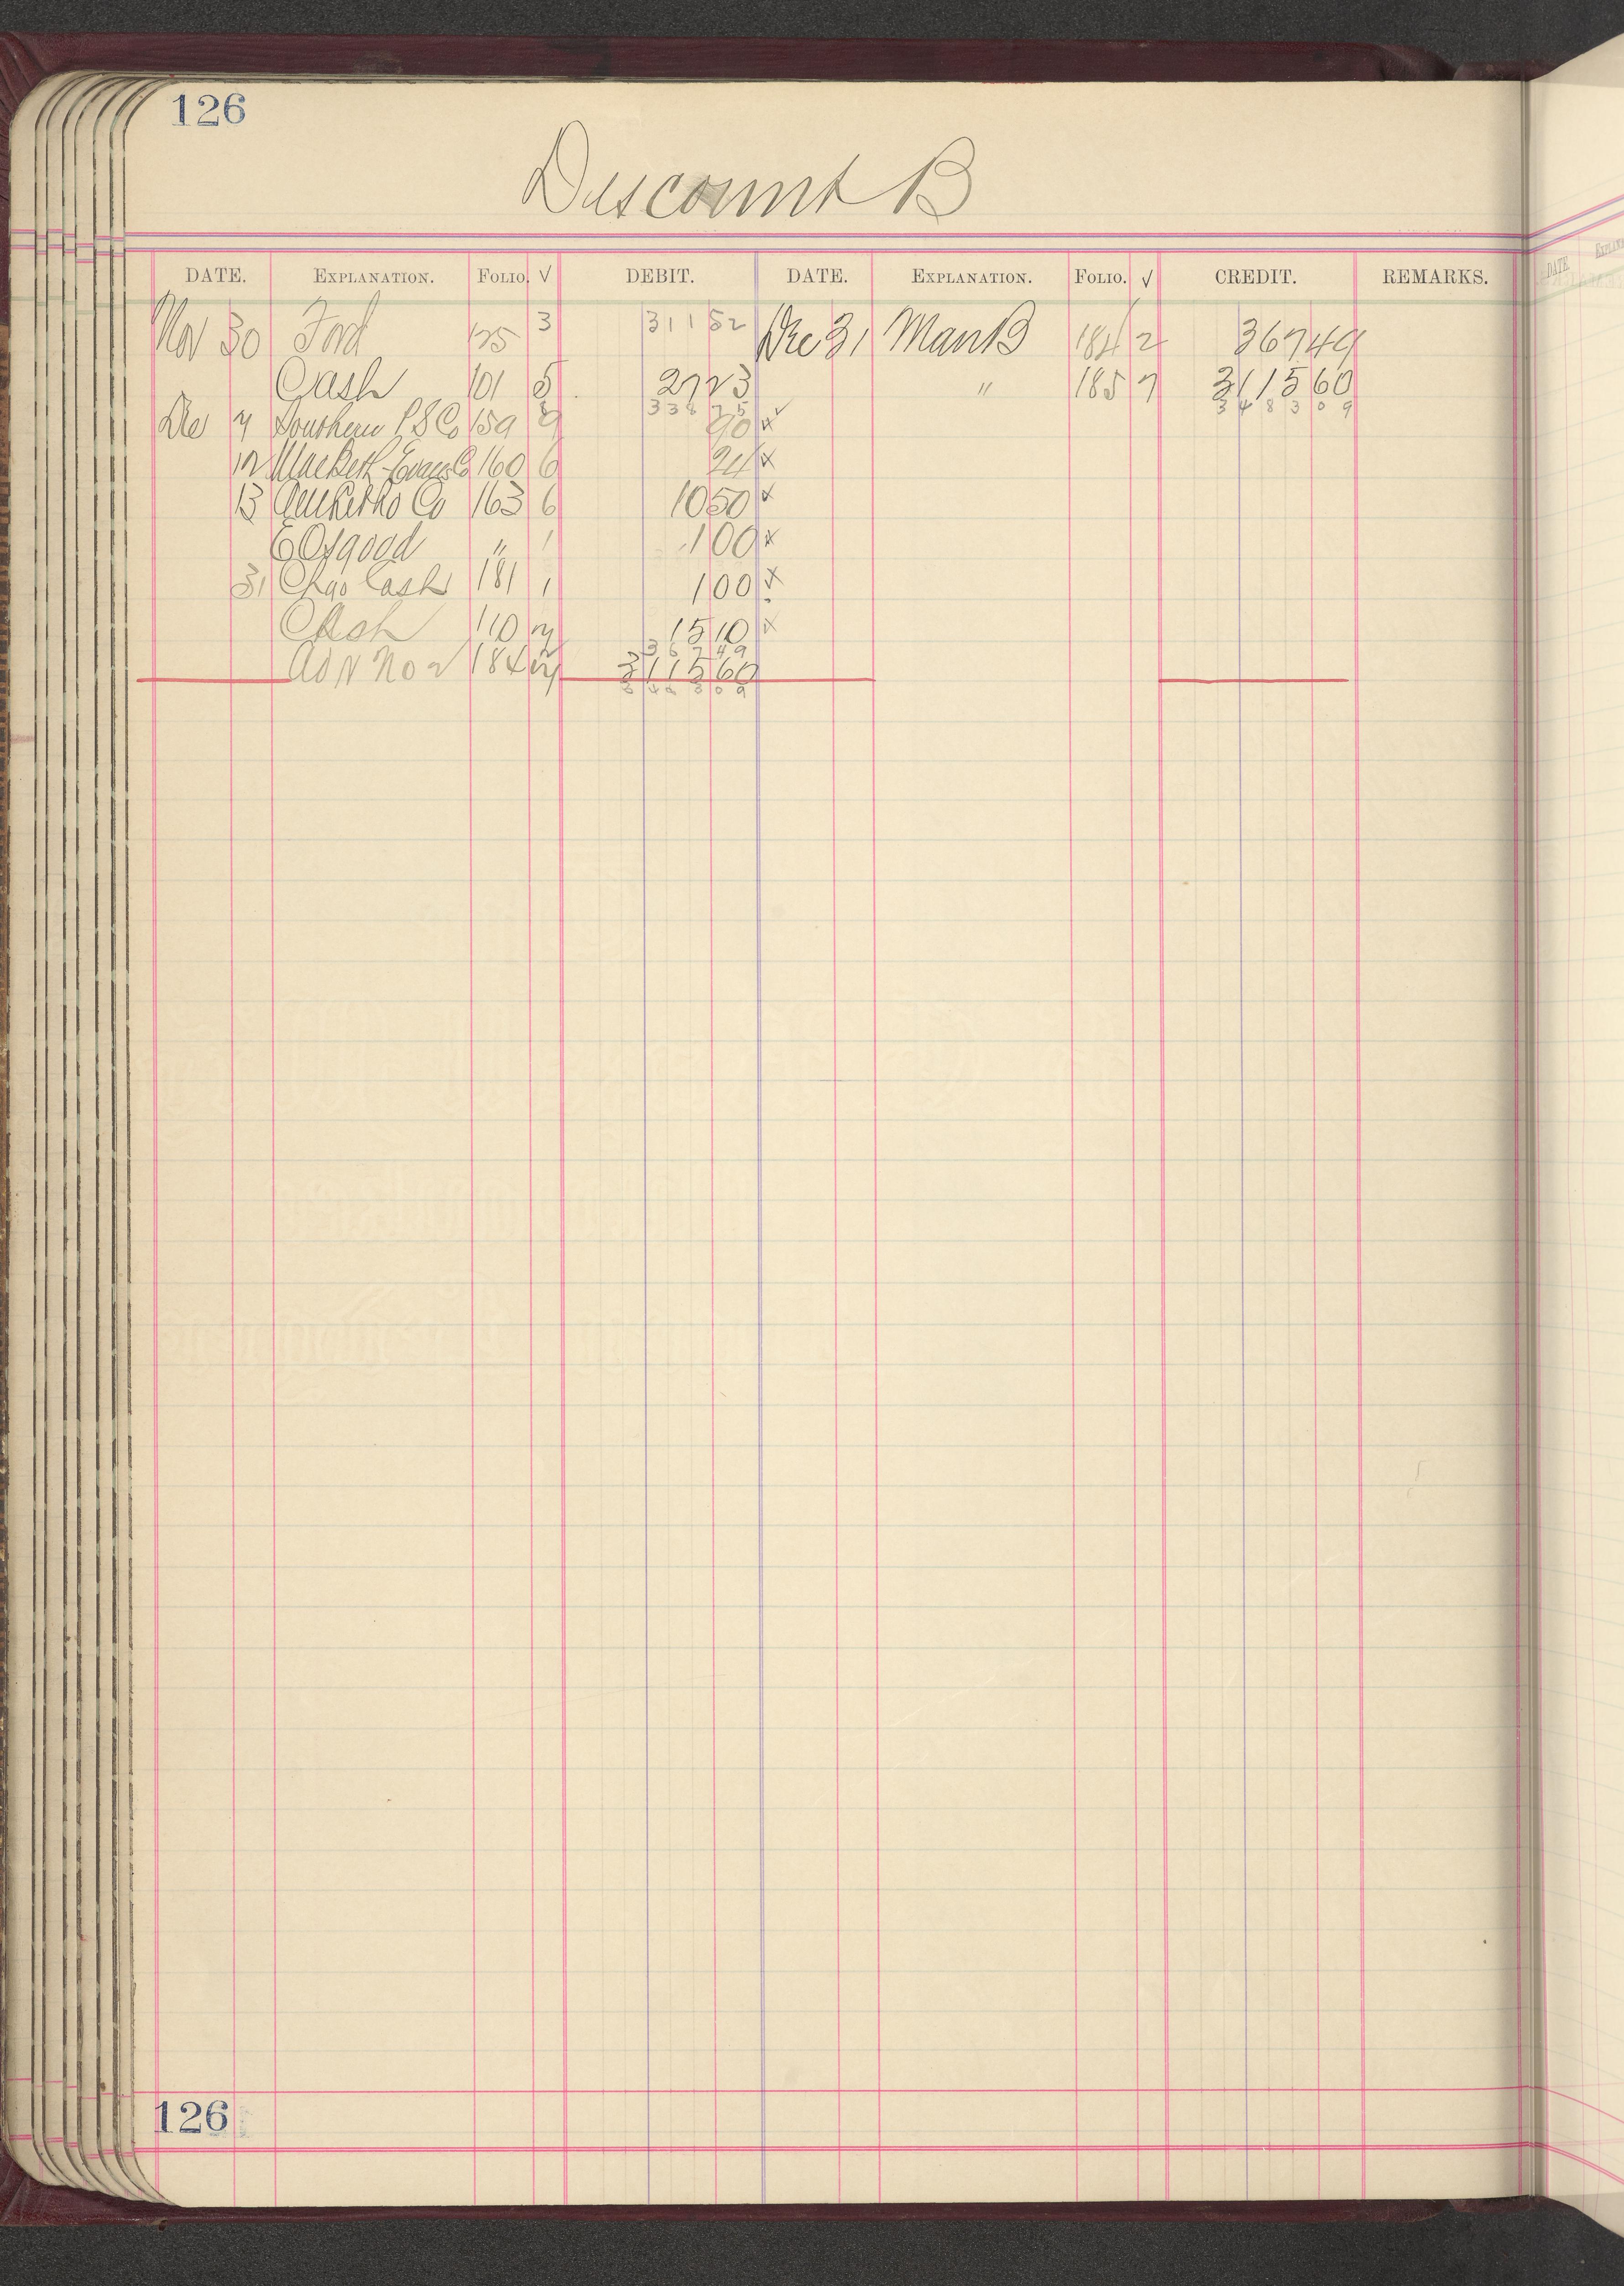 126
Discount B
DATE. EXPLANATION. FOLIO. √ DEBIT. DATE. EXPLANATION. FOLIO. √ CREDIT. REMARKS.
Nov 30 Ford 125 3 311 52 Dec 31 Man B 184 2 367 49
Cash 101 5 27 23 " 185 7 3115 60
338 75 3483 09
Dec 7 Southern P S Co 159 9 90 x
12 MacBeth-Evans Co 160 6 24 x
13 Co 163 6 10 50 x
E Osgood " 1 1 00 x
31 Chgo Cash 181 1 1 00 x
Cash 110 7 15 10 x
367 49
Adv No 2 184 7 3115 60
3483 09
126